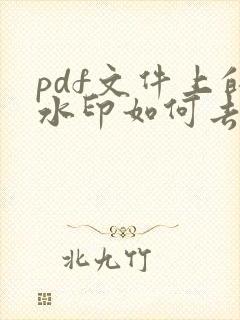 pdf文件上的
水印如何去
北九竹